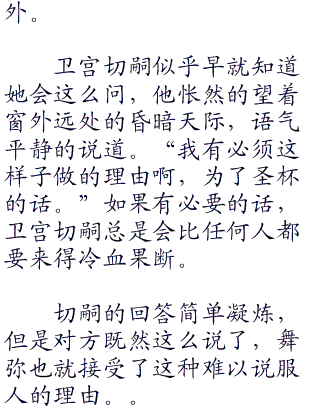 外。
卫宫切嗣似乎早就知道
她会这么问，他怅然的望着
窗外远处的昏暗天际，语气
平静的说道。“我有必须这
样子做的理由啊，为了圣杯
的话。”如果有必要的话，
卫宫切嗣总是会比任何人都
要来得冷血果断。
切嗣的回答简单凝炼，
但是对方既然这么说了，舞
弥也就接受了这种难以说服
人的理由。。